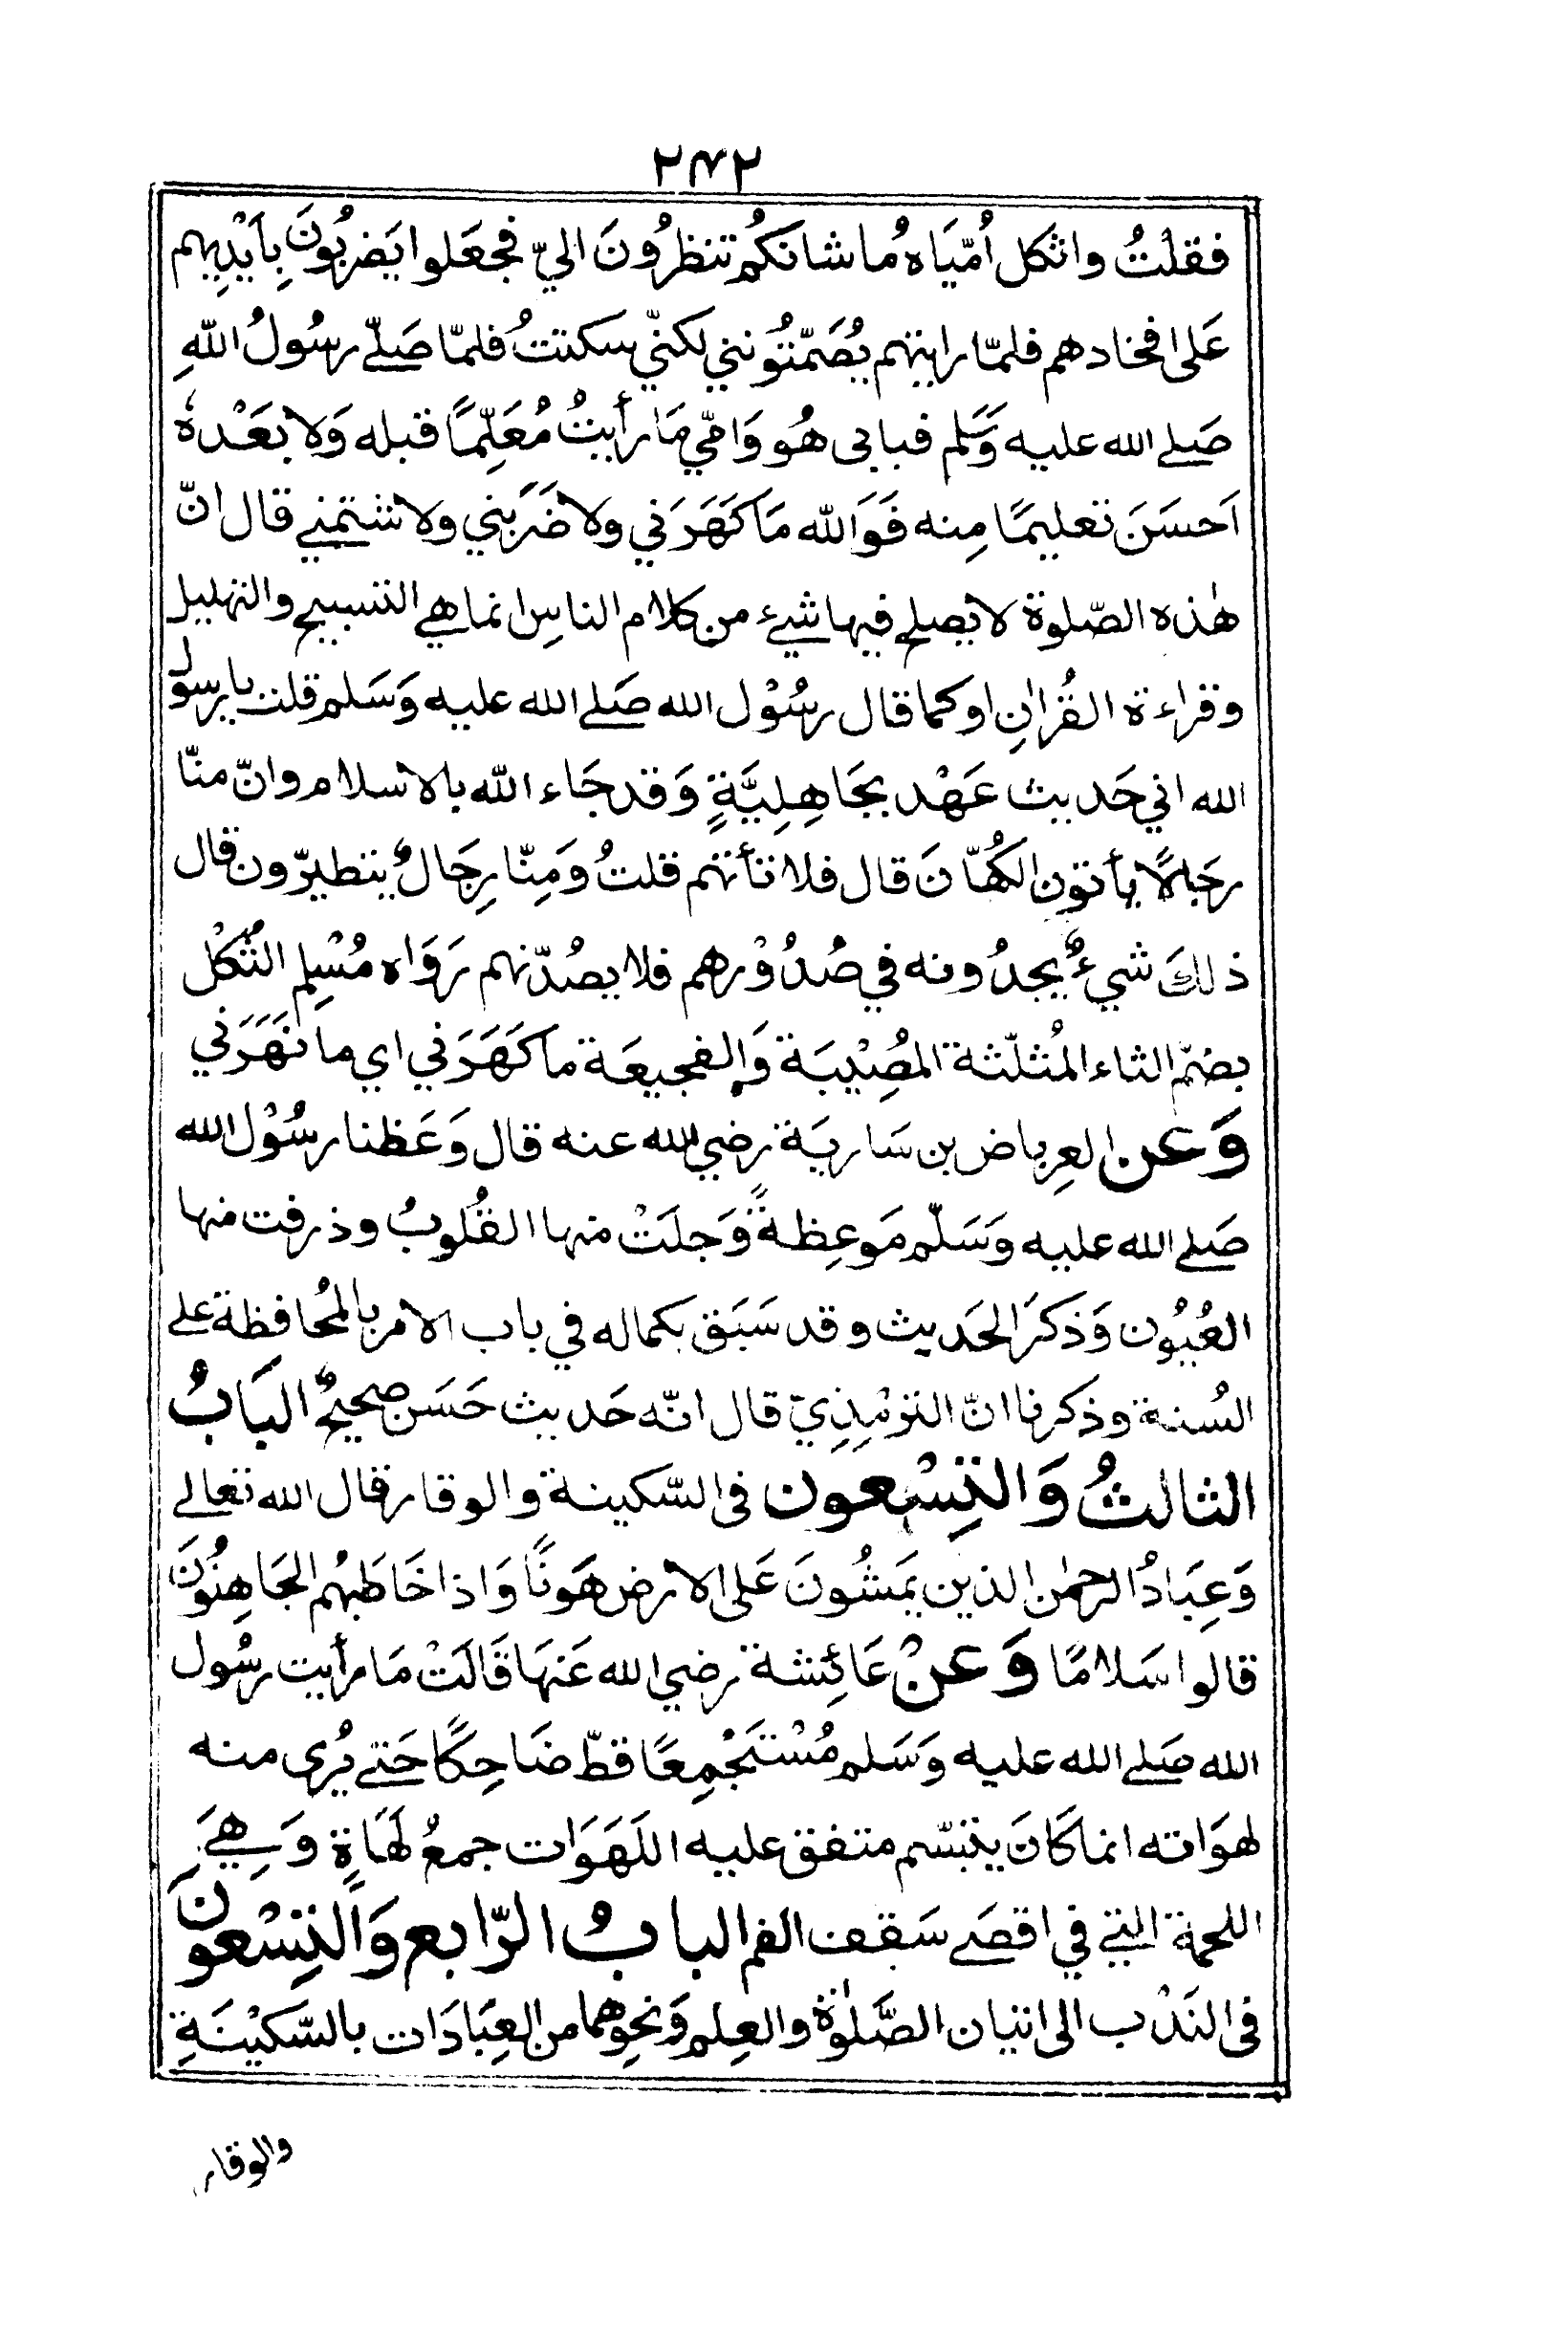 ٢٧٢
فقلتُ واثكل اُمّيَاه ُما شانكُم تنظرُونَ اليّ فجعَلوا يَضربُونَ بِاَيْدِيهم
عَلى افخادهم فلمّا رايتهم يُصَمّتُونني لكنّي سكتتُ فلمّا صَلّے رسُولُ اللّٰهِ
صَلے الله عليه وَسَلم فبابى هُو وَامّي مَا رأيتُ مُعَلّمًا قبله وَلا بَعْدهٗ
اَحسَنَ تعليمًا مِنه فَوَاللّٰه مَا كَهَرَني ولا ضَرَبَني ولا شتمنے قال انّ
هٰذه الصّلوة لا يصلح فيها شيء من كلام الناسِ انما هي التسبيح والتهليل
وقراءة القُراٰنِ اوكما قال رسُوْل الله صَلے الله عليه وَسَلم قلت يا رسول
الله اني حَديث عَهْد بجَاهِلِيَّةٍ وَقد جَاء اللّٰه بالاسلام وانّ منّا
رجَالًا يأتون الكُهّانَ قال فلا تأتهم قلتُ وَمِنّا رِجَالٌ يتطيرّون قال
ذلكَ شيءٌ يجدُونه في صُدُوْرهم فلا يصُدّنهم رَوَاه مُسْلِم الثُكْل
بضمّ الثاء المُثلّثة المُصِيْبَة وَالفجيعَة ما كَهَرَني اي ما نَهَرَني
وَعن العِرباض بن سَاريَة رضي الله عنه قال وَعَظنا رسُوْل الله
صَلے الله عليه وَسَلّم مَوعِظةً وَجلَتْ منها القُلوبُ وذرفت منها
العُيُون وَذكَرَ الحَديث وقد سَبَق بكماله في باب الامر بالمُحافظة علے
السُنة وذكرنا انّ الترْمِذِيّ قال انّه حَديث حَسَن صحيحٌ البَابُ
الثالثُ وَالتِسْعون فى السّكينة والوقار قال الله تعالے
وَعِبَادُ الرحمٰن الذين يَمشُونَ عَلى الارض هَونًا وَاذا خَاطَبهُم الجَاهِلُونَ
قالوا سَلامًا وَعنْ عَائِشة رضي الله عَنهَا قَالَتْ مَا رأيت رسُول
الله صَلے الله عليه وَسَلم مُسْتَجْمِعًا قطّ ضَاحِكًا حَتے يُرى منه
لهوَاته انما كَانَ يتبسّم متفق عليه اللَهَوَات جمعُ لَهَاةٍ وَهِيَ
اللحمة التے في اقصَے سَقف الفم البابُ الرّابع وَالتِسْعونَ
فى النَدْب الى اتيان الصَّلٰوة والعِلم وَنحوِهما من العِبَادَات بالسّكيْنَةِ
والوقار